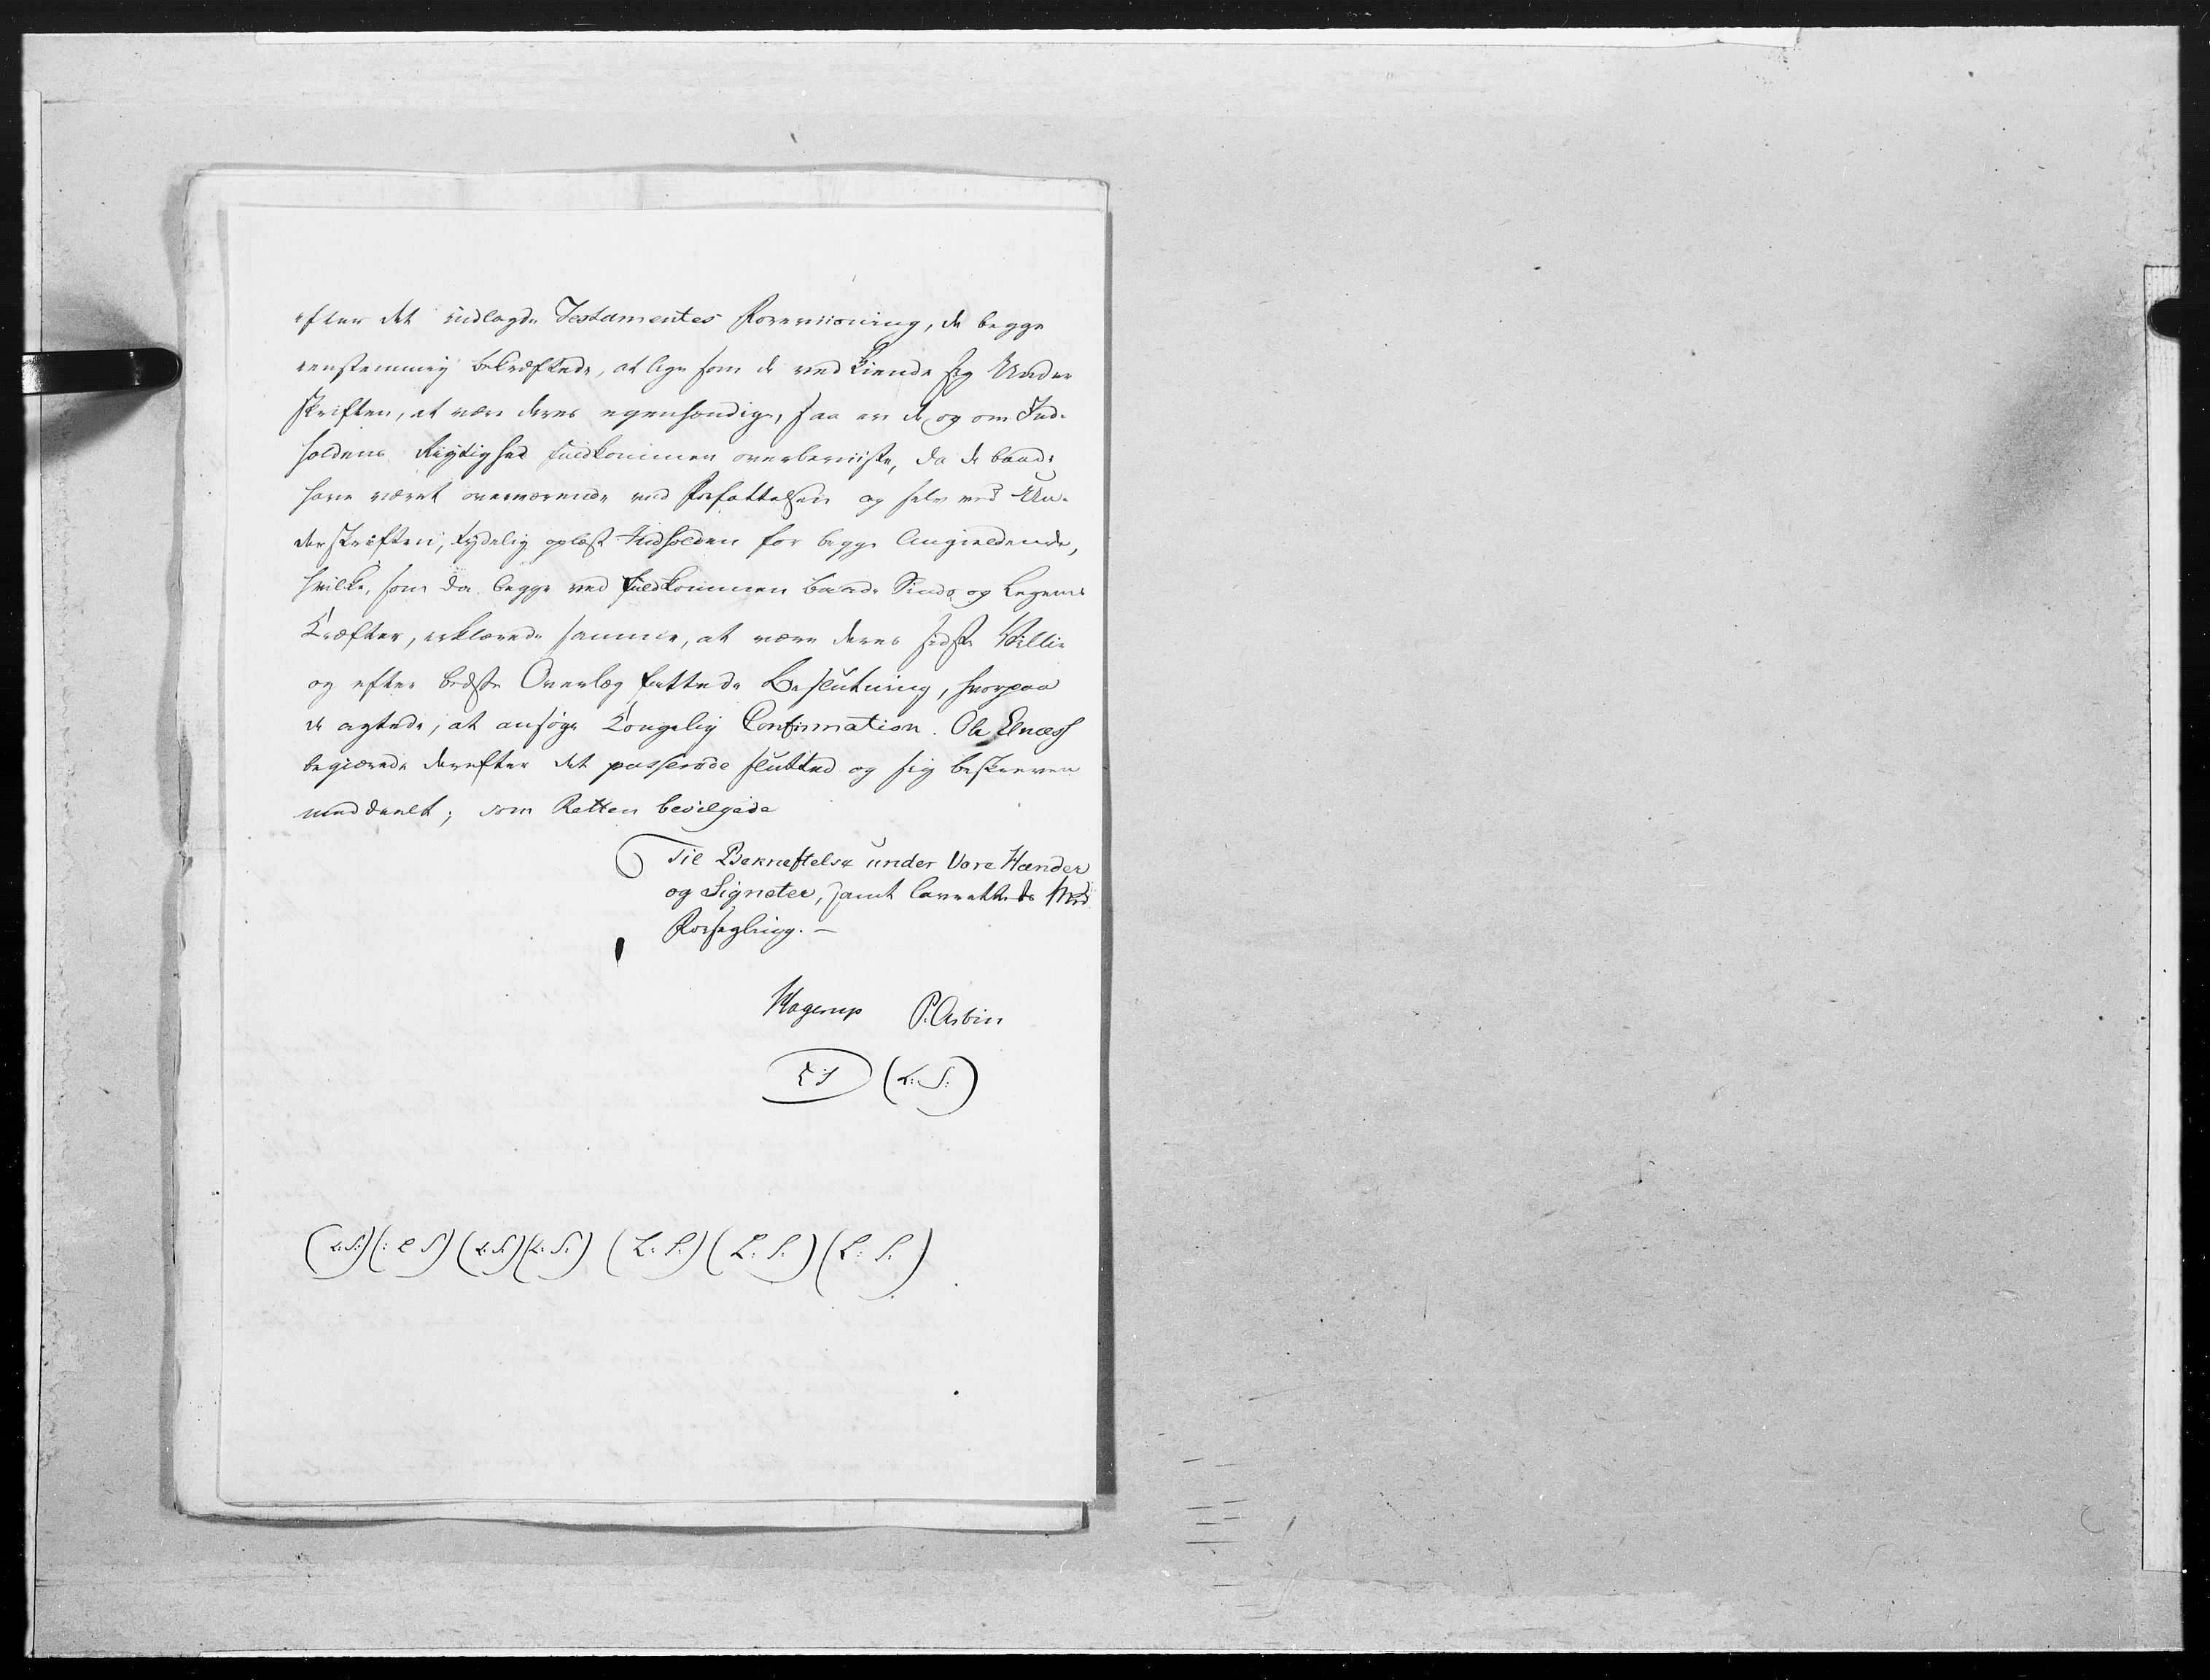 efter det indlagde Testamentes Foreviisning, de begge
eenstemmig bekræftede, at lige som de vedkiende sig Under
skriften, at være deres egenhændige, saa ere de og om Ind-
holdens Rigtighed fuldkommen overbeviiste, da de baade
have været overværende ved Forfattelsen og selv ved Un-
derskriften, tydelig oplæst Indholden for begge Angieldende,
hvilke, som da begge ved fuldkommen baade Sinds og Legems
Kræfter, erklærede samme, at være deres sidste Villie
og efter bedste Overlæg fattede Beslutning, hvorpaa
de agtede, at ansøge Kongelig Confirmation. Ole Elnæss
begiærede derefter det passerede sluttet og sig beskreven
meddeelt; som Retten bevilgede
Til Bekræftelse under Vore Hænder
og Signeter, samt Laurettets Med
Forsegling. –
Hagerup P. Arbin
LS (L: S:)
(L:S:) (: L S) (L:S:) (L: S:) (L: S:) (L: S:) (L: S:)